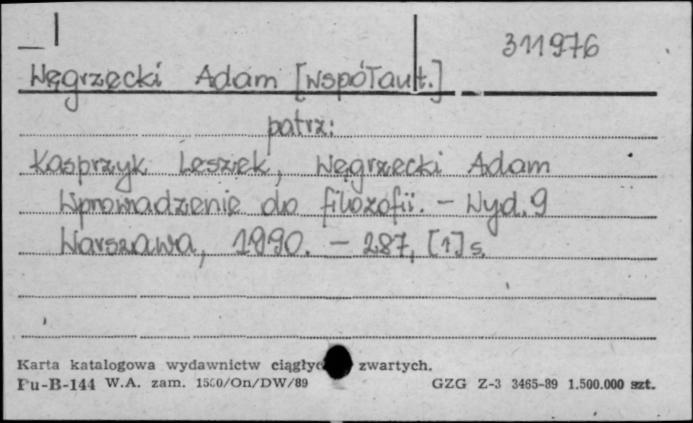 311976
Węgrzecki Adam [współaut.]
patrz:
Kasprzyk Leszek, Węgrzecki Adam
Wprowadzenie do filozofii. - Wyd. 9
Warszawa, 1990. - 287, [1] s.
Karta katalogowa wydawnictw ciągłyc zwartych.
Pu-B-144 W.A. zam. 1550/On/DW/89 GZG Z-3 3465-89 1.500.000 szt.